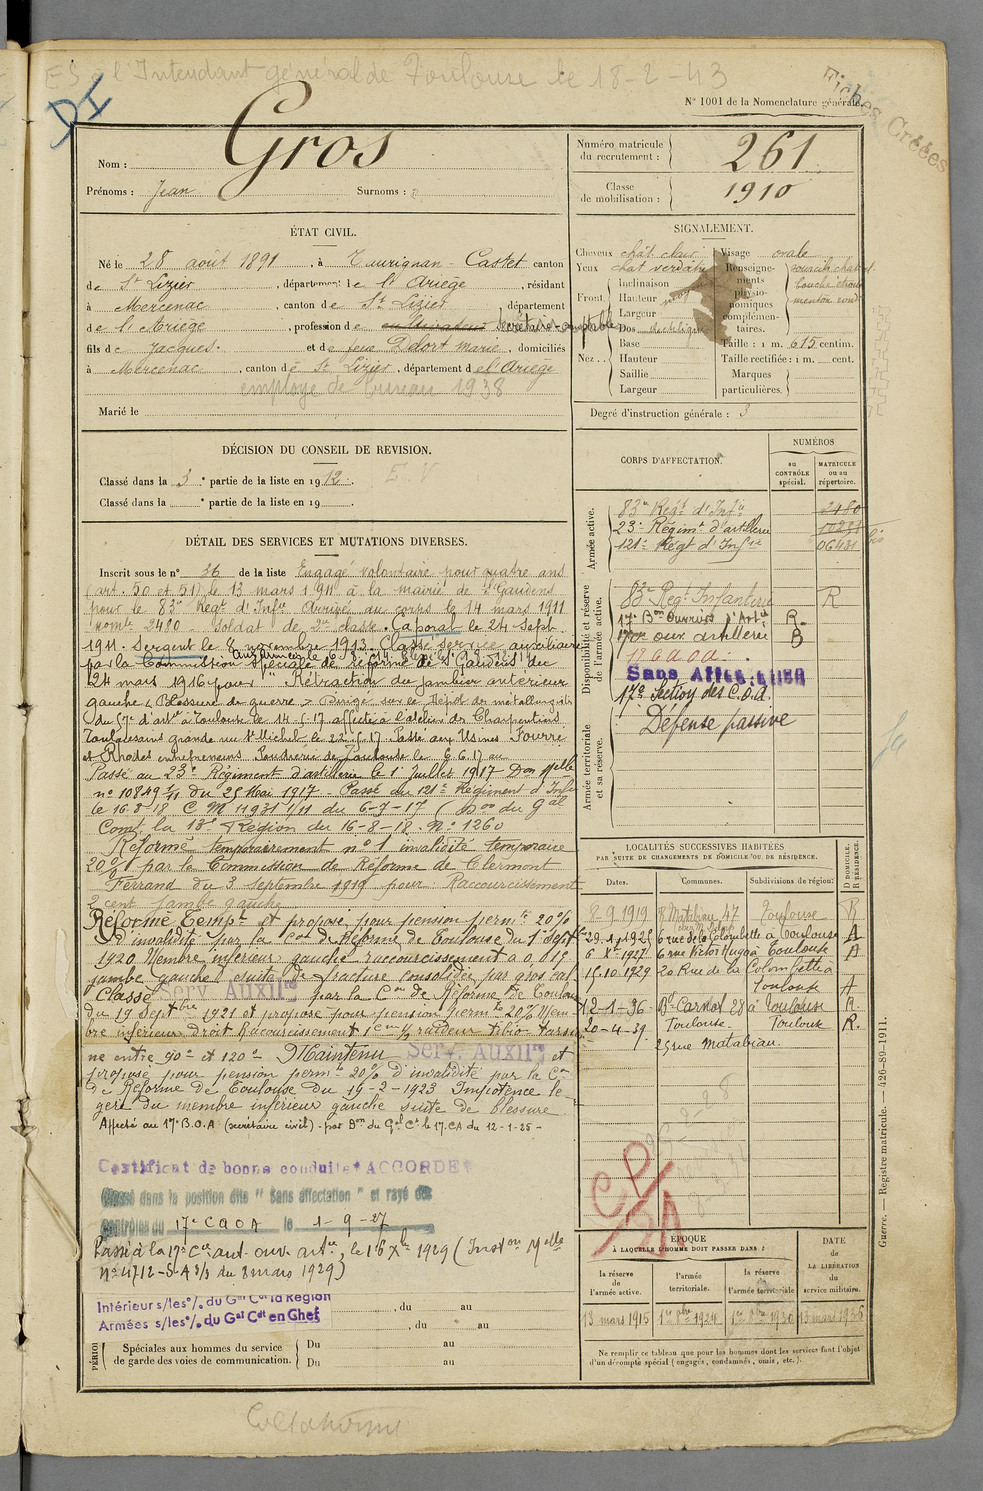 ES à l'Intendant général de Toulouse le 18-2-43
DI
Fiches Créées
N° 1001 de la Nomenclature générale.
Nom : Gros
Prénoms : Jean Surnoms :
Numéro matricule du recrutement : 261
Classe de mobilisation : 1910
ÉTAT CIVIL.
Né le 28 août 1891, à Taurignan-Castet canton
de St Lizier, département de l'Ariège, résidant
à Mercenac, canton de St Lizier département
de l'Ariège, profession de cultivateur Secrétaire-comptable
fils de Jacques. et de feue Ddort Marie, domiciliés
à Mercenac, canton de St Lizier, département de l'Ariège
employé de bureau 1938
Marié le
SIGNALEMENT.
Cheveux chât clair
Yeux chat verdâtre
Front
Inclinaison
Hauteur moy
Largeur
Nez
Dos rectiligne
Base
Hauteur
Saillie
Largeur
Visage ovale
Renseignements physionomiques complémentaires.
sourcils chat
bouche
menton rond
Taille : 1 m. 615 centim.
Taille rectifiée : 1 m. cent.
Marques particulières.
Degré d'instruction générale : 3
DÉCISION DU CONSEIL DE REVISION.
Classé dans la 3e partie de la liste en 1912. E.V
Classé dans la e partie de la liste en 19
DÉTAIL DES SERVICES ET MUTATIONS DIVERSES.
Inscrit sous le n° 36 de la liste Engagé volontaire pour quatre ans
(art. 50 et 51) le 13 mars 1911 à la mairie de St Gaudens
pour le 83e Régt d'Infie Arrivé au corps le 14 mars 1911
nomle 2480. Soldat de 2me classe. Caporal le 24 Sept.
1911. Sergent le 8 novembre 1913. Classé service auxiliaire
par la Commission spéciale de réforme de St Gaudens du
24 mars 1916 pour "Rétraction du jambier antérieur
gauche, Blessure de guerre" Dirigé sur le Dépôt de métallurgistes
du 57e d'artie à Toulouse le 14-5-17 affecté à l'atelier de Charpentiers
Toulousains grande rue St Michel le 22-5-17. Passé aux Usines Fourré
et Rhodes entrepreneurs Poudrerie de Toulouse le 6.6.17 au
Passé au 23e Régiment d'artillerie le 1er Juillet 1917 Don Mlle
n° 10849 1/11 du 25 Mai 1917. Passé du 121e Régiment d'Infie
le 16-8-18 C M 11931 1/11 du 6-7-17 (Don du Gal
Comt la 13e Région du 16-8-18. N° 1260
Réformé temporairement n° 1 invalidité temporaire
20% par la Commission de Réforme de Clermont
Ferrand du 3 septembre 1919 pour Raccourcissement
2 cent jambe gauche
Réformé Tempt et proposé pour pension permte 20%
d'invalidité par la Con de Réforme de Toulouse du 1er Sept
1920 Membre inférieur gauche raccourcissement a 0,019
jambe gauche suite de fracture consolidée par gros cal
Classé Serv. Auxilre par la Con de Réforme de Toulouse
du 19 Septbre 1921 et proposé pour pension permte 20% Mem-
bre inférieur droit Raccourcissement 1cm 1/2 raideur tibio tarsien-
ne entre 90° et 120° Maintenu Serv. Auxilre et
proposé pour pension permte 20% d'invalidité par la Con
de Réforme de Toulouse du 19-2-1923 Impotence lé-
gère du membre inférieur gauche suite de blessure
Affecté au 17e B.O.A (secrétaire civil) - par Don du Gal Ct le 17.CA du 12-1-25 -
Certificat de bonne conduite "ACCORDÉ"
Classé dans la position dite "Sans affectation" et rayé des
contrôles du 17e C.O.A le 1-9-27
Passé à la 17e Cie aut. ouv. artie, le 16 Xbre 1929 (Inston Mlle
N° 4712-S-A 3/3 du 8 mars 1929)
Intérieur s/les °/. du Gal Cdt la Région, du au
Armées s/les °/. du Gal Cdt en Chef, du au
Spéciales aux hommes du service de garde des voies de communication.
Du au
Du au
CORPS D'AFFECTATION.
NUMÉROS
au CONTRÔLE spécial.
MATRICULE ou au répertoire.
Armée active.
83e Régt d'Infie 2480
23e Régimt d'artillerie
121e Régt d'Infie 06431 bis
Disponibilité et réserve de l'armée active.
83e Regt Infanterie R
17e Bon Ouvriers d'Artie R.
artillerie B
17e C.O.A.
Sans Affectation
17e Section des C.O.A
Armée territoriale et sa réserve.
Défense passive
LOCALITÉS SUCCESSIVES HABITÉES
PAR SUITE DE CHANGEMENTS DE DOMICILE OU DE RÉSIDENCE.
Dates. Communes. Subdivisions de région. D DOMICILE. R RÉSIDENCE.
8-9-1919 r Matabiau 47 Toulouse R
29-1-1925 6 rue de la Colombette à Toulouse A
6 Xe 1927 6 rue Victor Hugo à Toulouse A
15-10-1929 20 Rue de la Colombette à
Toulouse A
12-1-36 Bd Carnot 28 à Toulouse R.
20-4-39. Toulouse. Toulouse R.
25 rue Matabiau.
CP/DA
ÉPOQUE
À LAQUELLE L'HOMME DOIT PASSER DANS :
la réserve de l'armée active.
l'armée territoriale.
la réserve de l'armée territoriale
DATE de LA LIBÉRATION du service militaire.
13 mars 1915 1er 8bre 1924 1er 8bre 1930 13 mars 1936
Ne remplir ce tableau que pour les hommes dont les services font l'objet
d'un décompte spécial (engagés, condamnés, omis, etc.).
Guerre. — Registre matricule. — 426-89-1911.
Collationné